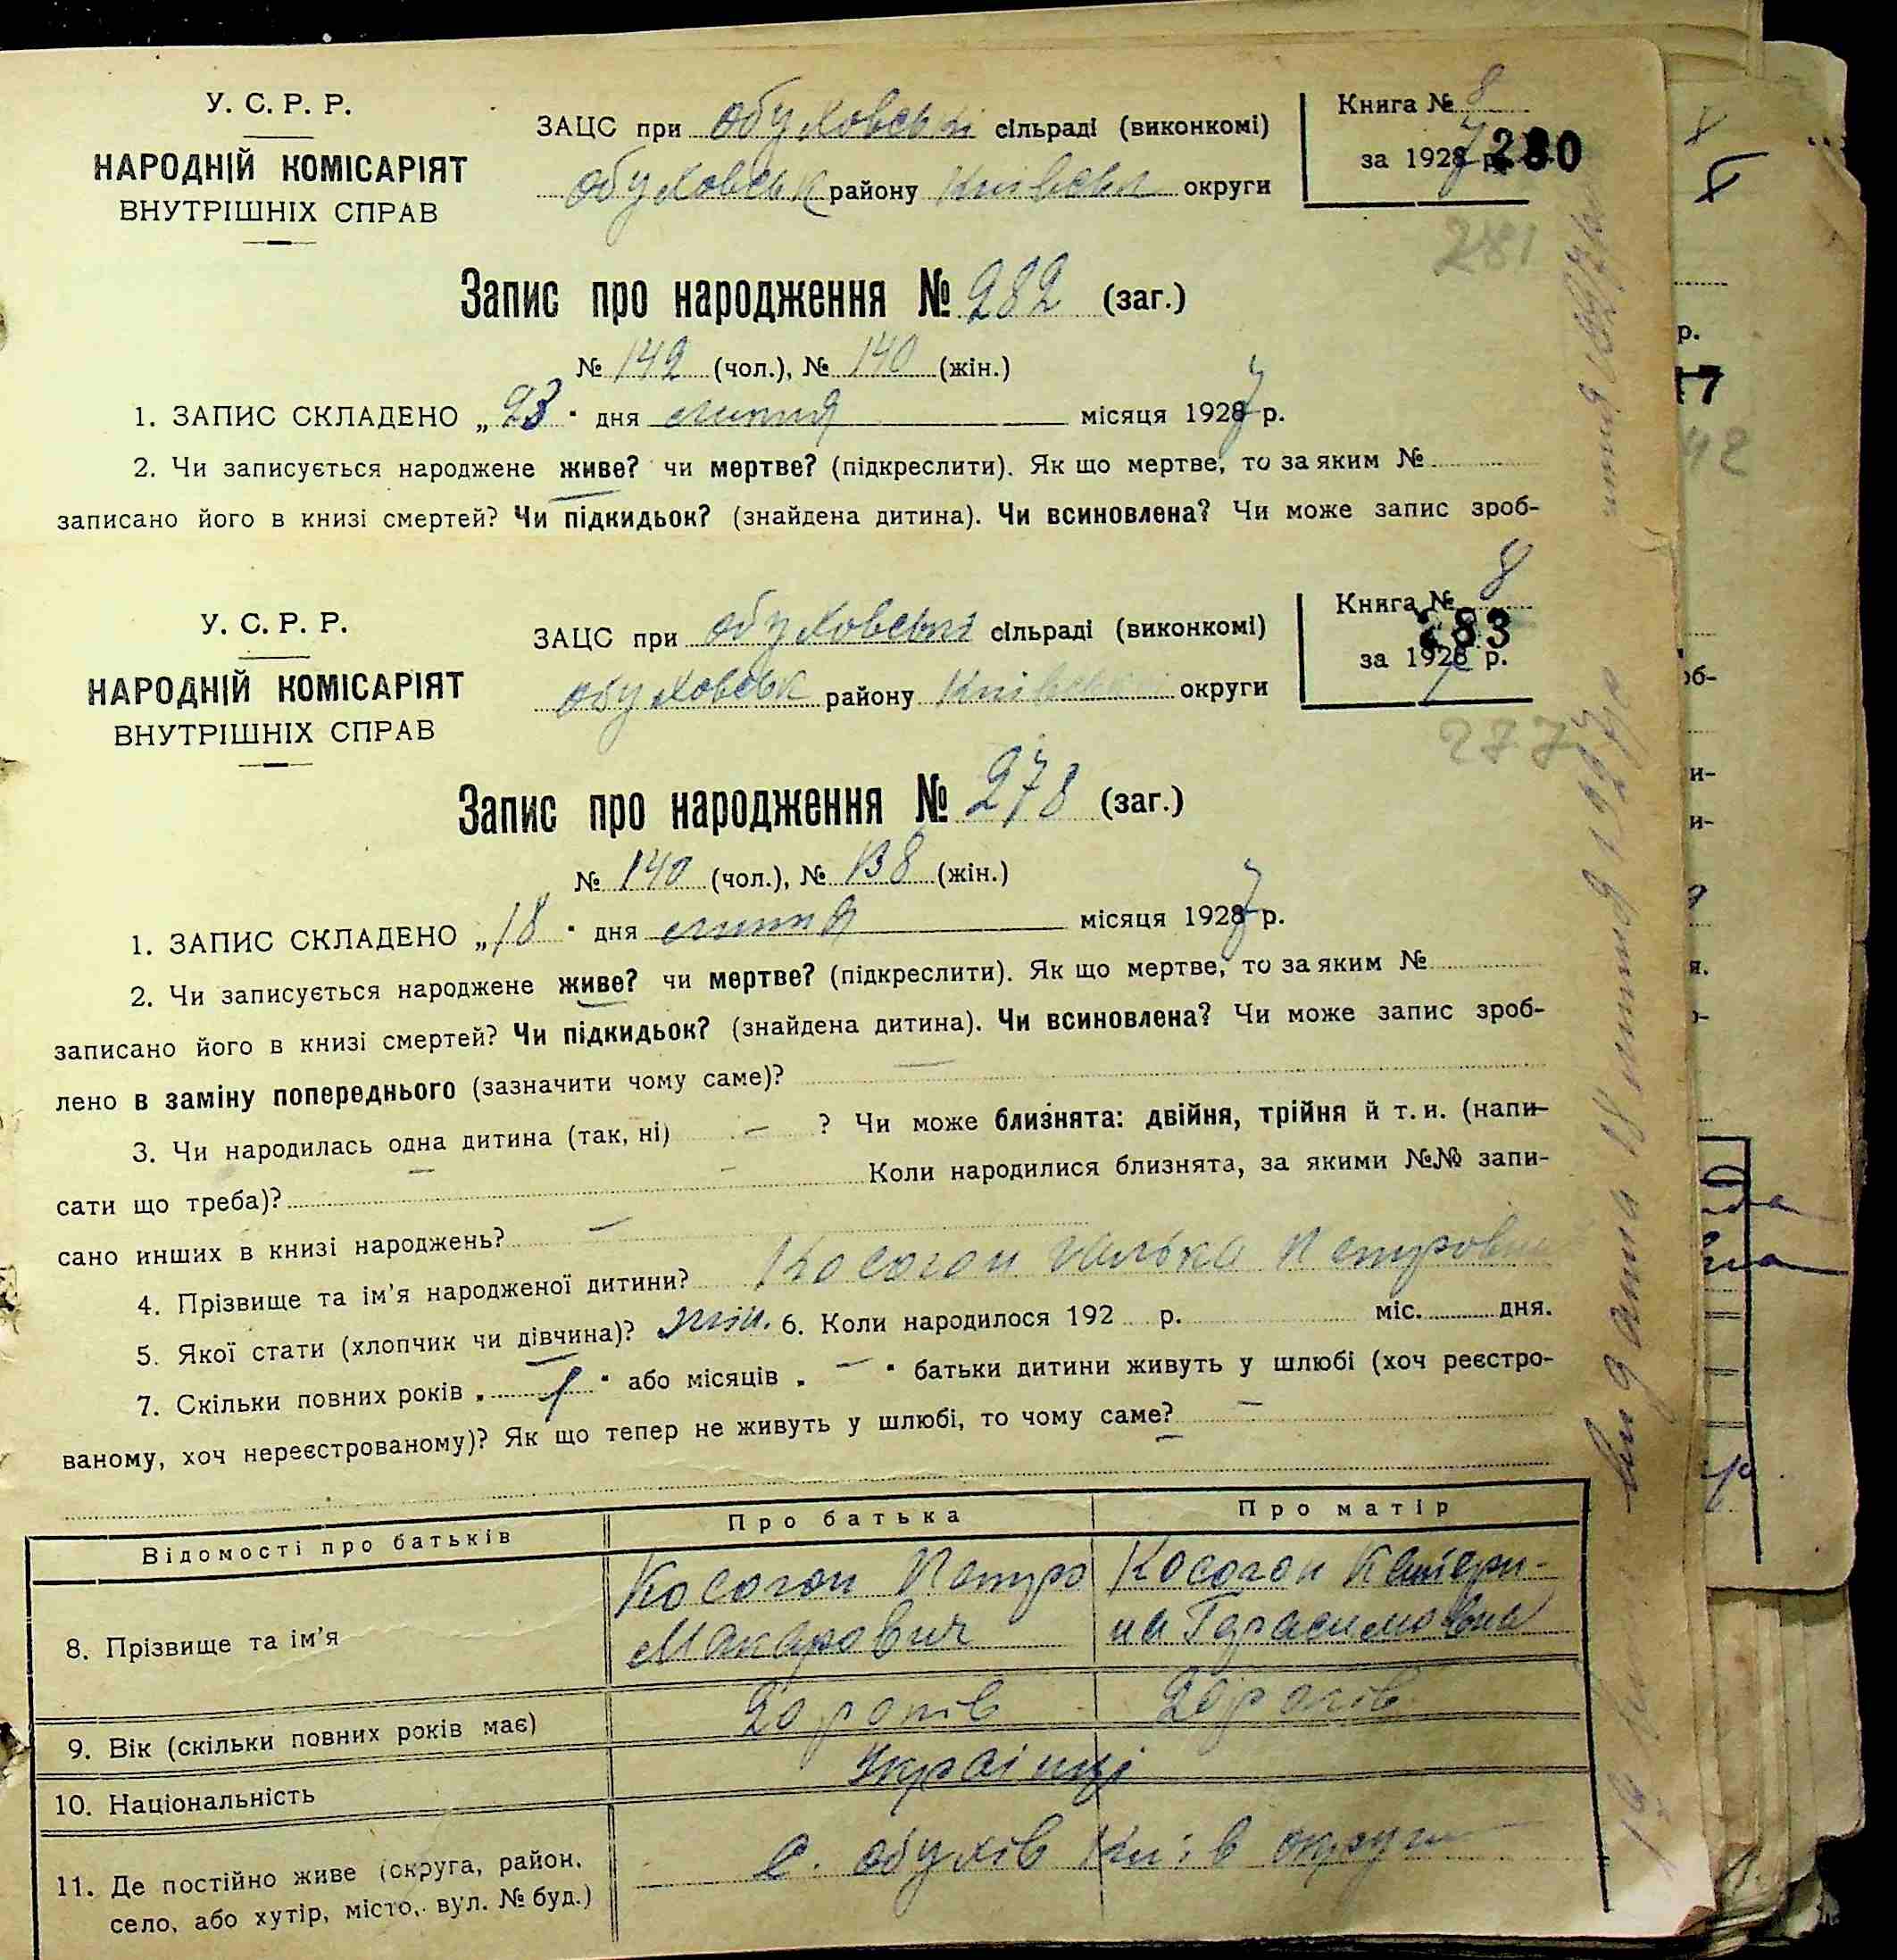 У. С. Р. Р.
НАРОДНІЙ КОМІСАРІЯТ
ВНУТРІШНІХ СПРАВ
ЗАЦС при Обуховські сільраді (виконкомі)
Обуховськ району Київськ округи
Книга № 8
за 1927 р. 280
281
Запис про народження № 282 (заг.)
№ 142 (чол.), № 140 (жін.)
1. ЗАПИС СКЛАДЕНО „ 23 " дня липня місяця 1927 р.
2. Чи записується народжене живе? чи мертве? (підкреслити). Як що мертве, то за яким №
записано його в книзі смертей? Чи підкидьок? (знайдена дитина). Чи всиновлена? Чи може запис зроб-
У. С. Р. Р.
НАРОДНІЙ КОМІСАРІЯТ
ВНУТРІШНІХ СПРАВ
ЗАЦС при Обуховські сільраді (виконкомі)
Обуховськ району Київськ округи
Книга № 8
283
за 1927 р.
277
Запис про народження № 278 (заг.)
№ 140 (чол.), № 138 (жін.)
1. ЗАПИС СКЛАДЕНО „ 18 " дня липня місяця 1927 р.
2. Чи записується народжене живе? чи мертве? (підкреслити). Як що мертве, то за яким №
записано його в книзі смертей? Чи підкидьок? (знайдена дитина). Чи всиновлена? Чи може запис зроб-
лено в заміну попереднього (зазначити чому саме)? —
3. Чи народилась одна дитина (так, ні) — ? Чи може близнята: двійня, трійня й т. и. (напи-
сати що треба)? — Коли народилися близнята, за якими №№ запи-
сано инших в книзі народжень? —
4. Прізвище та ім'я народженої дитини? Косогон Галька Петровна
5. Якої стати (хлопчик чи дівчина)? жін. 6. Коли народилося 192 р. міс. дня.
7. Скільки повних років „ 1 " або місяців „ — " батьки дитини живуть у шлюбі (хоч реєстро-
ваному, хоч нереєстрованому)? Як що тепер не живуть у шлюбі, то чому саме? —
Відомості про батьків Про батька Про матір
8. Прізвище та ім'я Косогон Петро Макарович Косогон Катери-
на Герасимовна
9. Вік (скільки повних років має) 20 років 20 років
10. Національність Українці
11. Де постійно живе (округа, район,
село, або хутір, місто, вул. № буд.) с. Обухів Київ округи